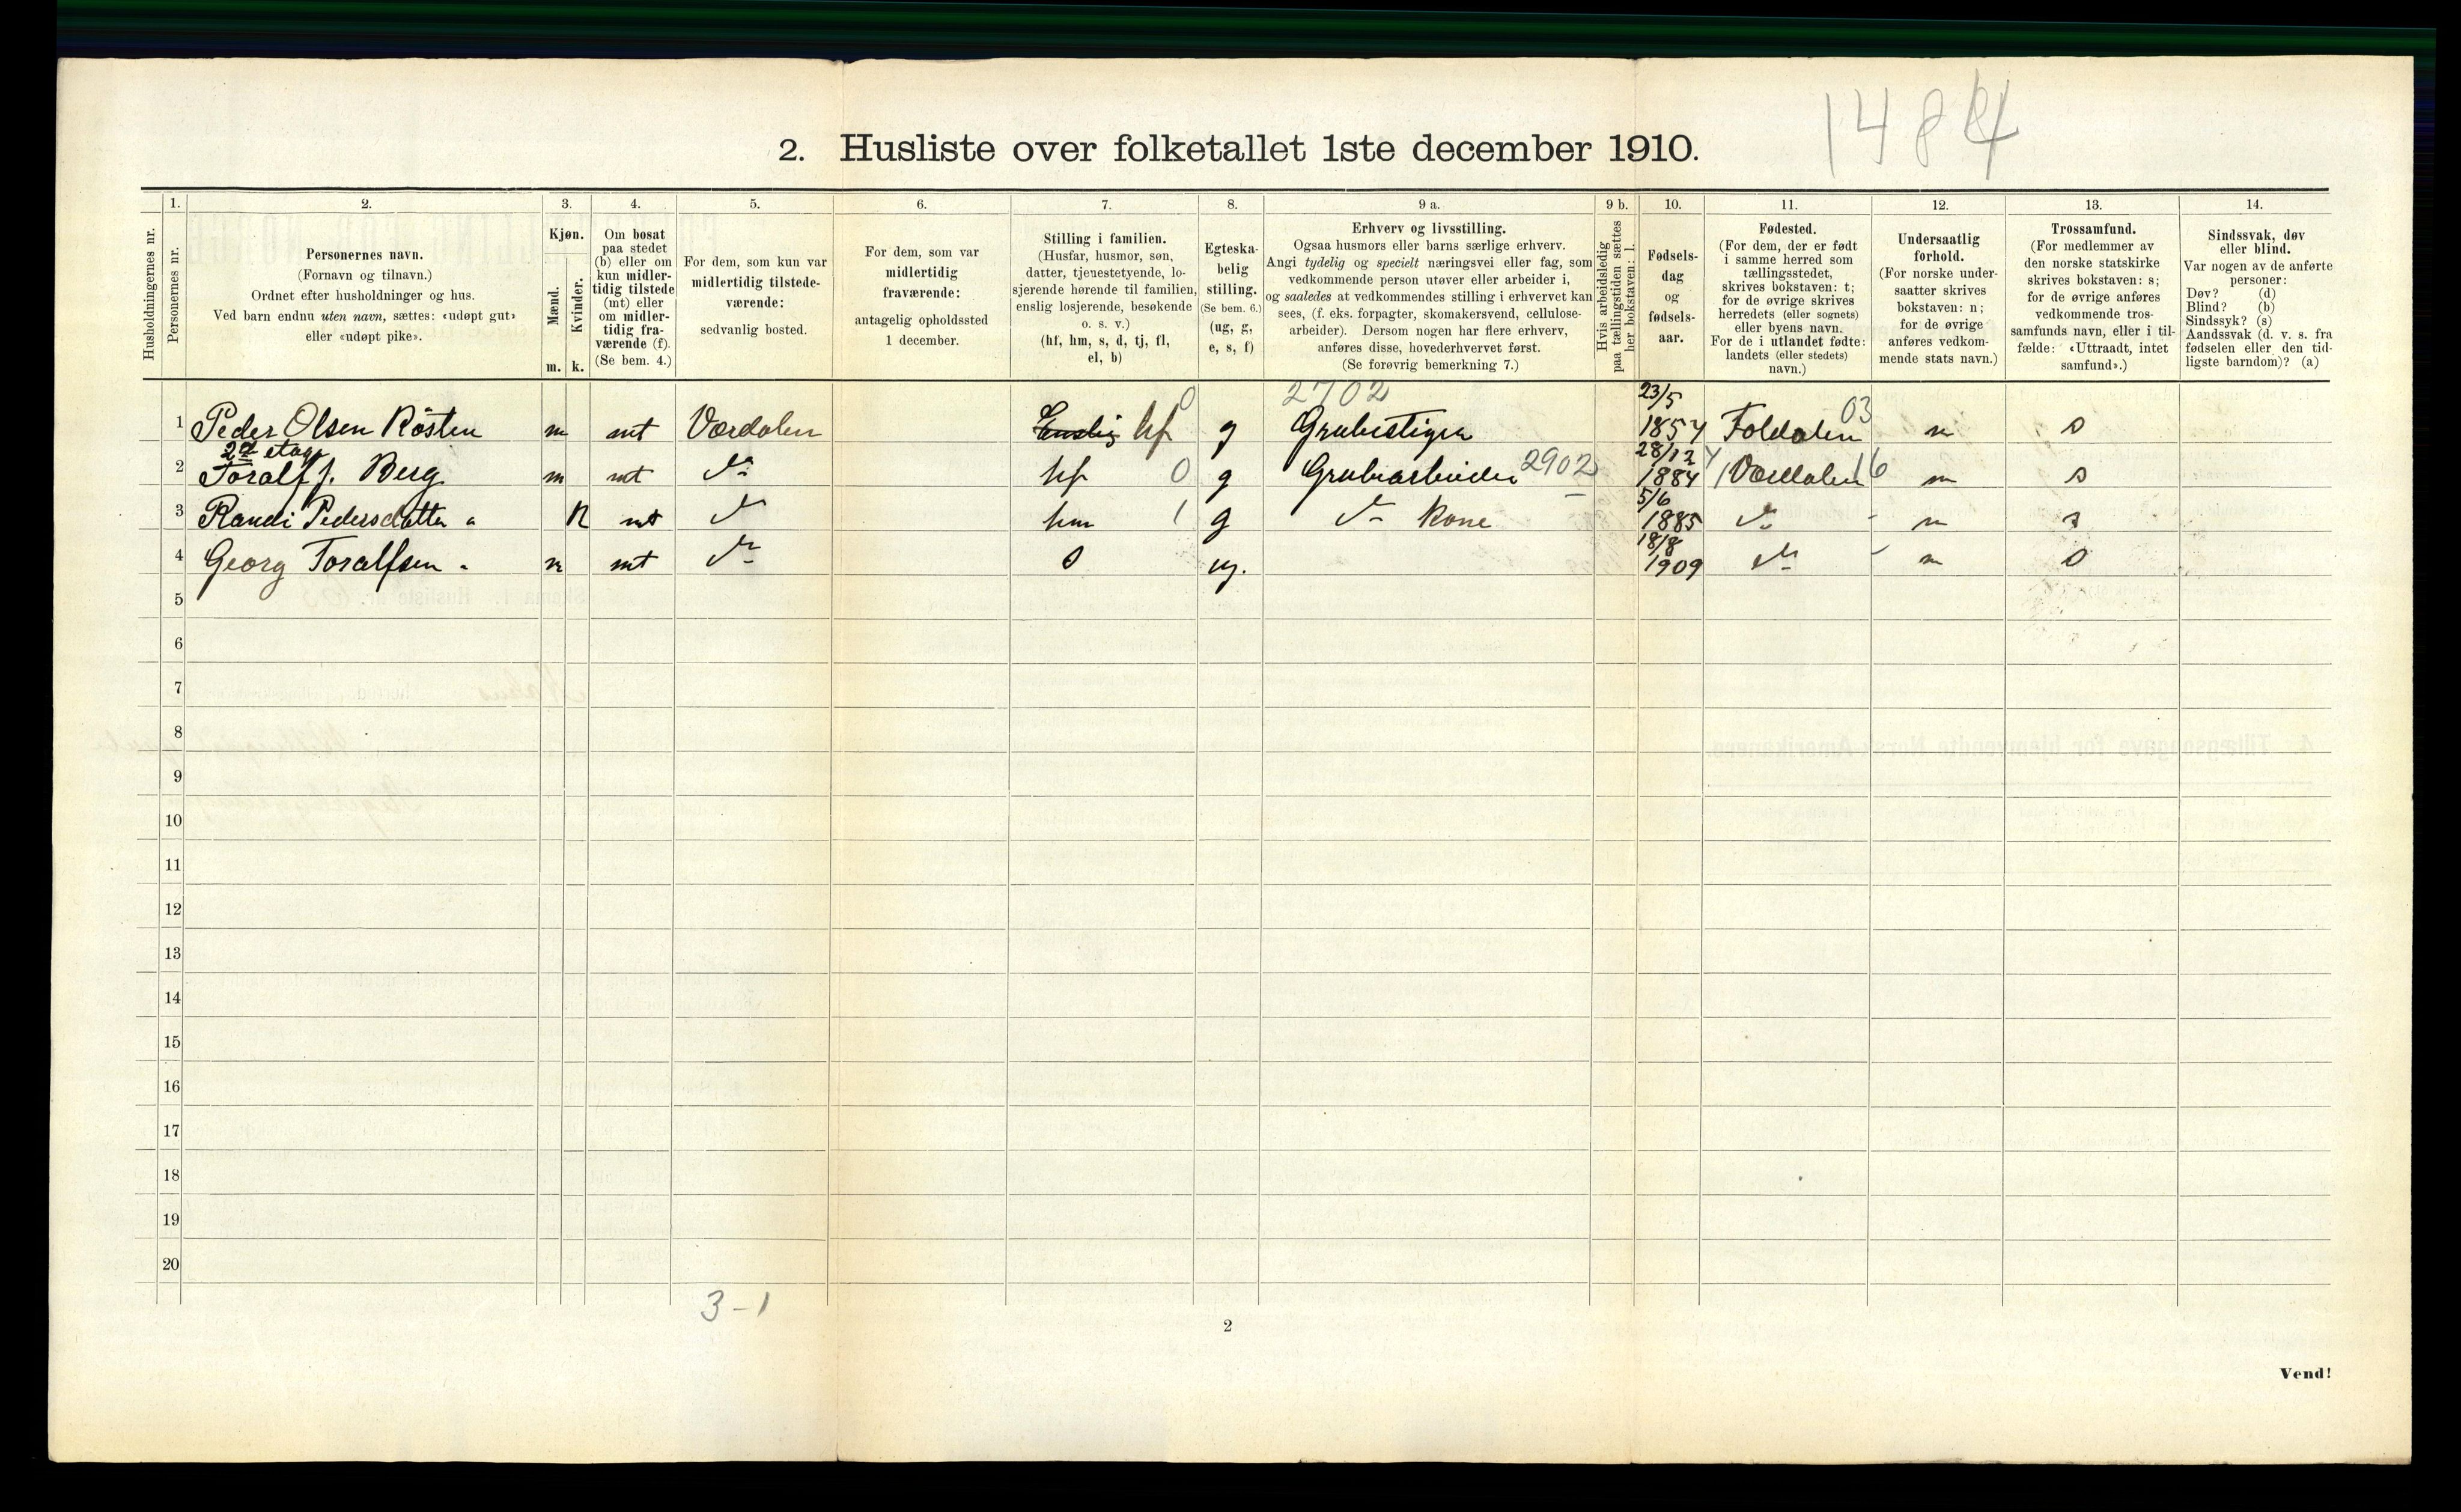 1484
2. Husliste over folketallet 1ste december 1910.
Husholdningernes nr.
1.
Personernes nr.
2.
Personernes navn.
(Fornavn og tilnavn.)
Ordnet efter husholdninger og hus.
Ved barn endnu uten navn, sættes: «udøpt gut»
eller «udøpt pike».
3.
Kjøn.
Mænd.
Kvinder.
m. k.
4.
Om bosat
paa stedet
(b) eller om
kun midler-
tidig tilstede
(mt) eller
om midler-
tidig fra-
værende (f).
(Se bem. 4.)
5.
For dem, som kun var
midlertidig tilstede-
værende:
sedvanlig bosted.
6.
For dem, som var
midlertidig
fraværende:
antagelig opholdssted
1 december.
7.
Stilling i familien.
(Husfar, husmor, søn,
datter, tjeuestetyende, lo-
sjerende hørende til familien,
enslig losjerende, besøkende
o. s. v.)
(hf, hm, s, d, tj, fl,
el, b)
8.
Egteska-
belig
stilling.
(Se bem. 6.)
(ug, g,
e, s, f)
9 a.
Erhverv og livsstilling.
Ogsaa husmors eller barns særlige erhverv.
Angi tydelig og specielt næringsvei eller fag, som
vedkommende person utøver eller arbeider i,
og saaledes at vedkommendes stilling i erhvervet kan
sees, (f. eks. forpagter, skomakersvend, cellulose-
arbeider). Dersom nogen har flere erhverv,
anføres disse, hovederhvervet først.
(Se forøvrig bemerkning 7.)
9 b.
Hvis arbeidsledig
paa tællingstiden sættes
her bokstaven: l.
10.
Fødsels-
dag
og
fødsels-
aar.
11.
Fødested.
(For dem, der er født
i samme herred som
tællingsstedet,
skrives bokstaven: t;
for de øvrige skrives
herredets (eller sognets)
eller byens navn.
For de i utlandet fødte:
landets (eller stedets)
navn.)
12.
Undersaatlig
forhold.
(For norske under-
saatter skrives
bokstaven: n;
for de øvrige
anføres vedkom-
mende stats navn.)
13.
Trossamfund.
(For medlemmer av
den norske statskirke
skrives bokstaven: s;
for de øvrige anføres
vedkommende tros-
samfunds navn, eller i til-
fælde: «Uttraadt, intet
samfund».)
14.
Sindssvak, døv
eller blind.
Var nogen av de anførte
personer:
Døv? (d)
Blind? (b)
Sindssyk? (s)
Aandssvak (d. v. s. fra
fødselen eller den tid-
ligste barndom)? (a)
1 Peder Olsen Rösten m mt Værdalen Enslig hf 0 g 2702 Grubestiger 23/5 1857 Foldalen 03 n s
2d etage
2 Toralf J. Berg m mt do hf 0 g Grubearbeider 2902 28/12 1884 Værdalen 16 n s
3 Randi Pedersdatter " k mt do hm 1 g do kone 5/6 1885 do n s
4 Georg Toralfsen " m mt do s ug. 18/8 1909 do n s
5
6
7
8
9
10
11
12
13
14
15
16
17
18
19
20
3-1
2
Vend!